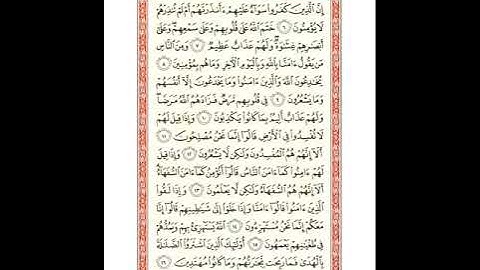 إِنَّ ٱلَّذِينَ كَفَرُوا۟ سَوَآءٌ عَلَيْهِمْ ءَأَنذَرْتَهُمْ أَمْ لَمْ تُنذِرْهُمْ
لَا يُؤْمِنُونَ ٦ خَتَمَ ٱللَّهُ عَلَىٰ قُلُوبِهِمْ وَعَلَىٰ سَمْعِهِمْ ۖ وَعَلَىٰٓ
أَبْصَٰرِهِمْ غِشَٰوَةٌ ۖ وَلَهُمْ عَذَابٌ عَظِيمٌ ٧ وَمِنَ ٱلنَّاسِ
مَن يَقُولُ ءَامَنَّا بِٱللَّهِ وَبِٱلْيَوْمِ ٱلْءَاخِرِ وَمَا هُم بِمُؤْمِنِينَ ٨
يُخَٰدِعُونَ ٱللَّهَ وَٱلَّذِينَ ءَامَنُوا۟ وَمَا يَخْدَعُونَ إِلَّآ أَنفُسَهُمْ
وَمَا يَشْعُرُونَ ٩ فِى قُلُوبِهِم مَّرَضٌ فَزَادَهُمُ ٱللَّهُ مَرَضًا ۖ
وَلَهُمْ عَذَابٌ أَلِيمٌۢ بِمَا كَانُوا۟ يَكْذِبُونَ ١٠ وَإِذَا قِيلَ لَهُمْ
لَا تُفْسِدُوا۟ فِى ٱلْأَرْضِ قَالُوٓا۟ إِنَّمَا نَحْنُ مُصْلِحُونَ
١١ أَلَآ إِنَّهُمْ هُمُ ٱلْمُفْسِدُونَ وَلَٰكِن لَّا يَشْعُرُونَ ١٢ وَإِذَا قِيلَ
لَهُمْ ءَامِنُوا۟ كَمَآ ءَامَنَ ٱلنَّاسُ قَالُوٓا۟ أَنُؤْمِنُ كَمَآ ءَامَنَ ٱلسُّفَهَآءُ ۗ
أَلَآ إِنَّهُمْ هُمُ ٱلسُّفَهَآءُ وَلَٰكِن لَّا يَعْلَمُونَ ١٣ وَإِذَا لَقُوا۟
ٱلَّذِينَ ءَامَنُوا۟ قَالُوٓا۟ ءَامَنَّا وَإِذَا خَلَوْا۟ إِلَىٰ شَيَٰطِينِهِمْ قَالُوٓا۟ إِنَّا
مَعَكُمْ إِنَّمَا نَحْنُ مُسْتَهْزِءُونَ ١٤ ٱللَّهُ يَسْتَهْزِئُ بِهِمْ وَيَمُدُّهُمْ
فِى طُغْيَٰنِهِمْ يَعْمَهُونَ ١٥ أُو۟لَٰٓئِكَ ٱلَّذِينَ ٱشْتَرَوُا۟ ٱلضَّلَٰلَةَ
بِٱلْهُدَىٰ فَمَا رَبِحَت تِّجَٰرَتُهُمْ وَمَا كَانُوا۟ مُهْتَدِينَ ١٦